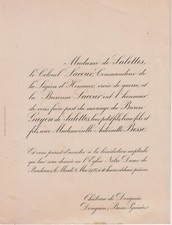 Madame de Salettes,
le Colonel Lacour, Commandeur de
la Légion d'Honneur, croix de guerre, et
la Baronne Lacour ont l'honneur
de vous faire part du mariage du Baron
de Salettes, leur petit-fils, beau-fils et
fils, avec Mademoiselle Antoinette Besse.
Et vous prient d'assister à la bénédiction nuptiale
qui leur sera donnée en l'Eglise Notre Dame de
Bordeaux, le Mardi
Château de Doazon
Doazon, Basses-Pyrénées